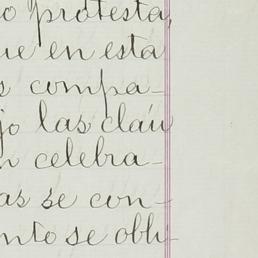 o protesta,
ue en esta
s compa-
jo las cláu
n celebra-
as se con-
nto se obli-